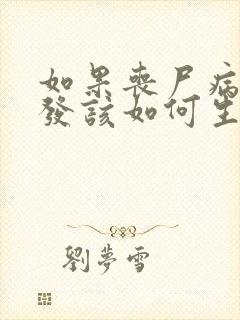 如果喪尸病
發該如何生
劉夢雪